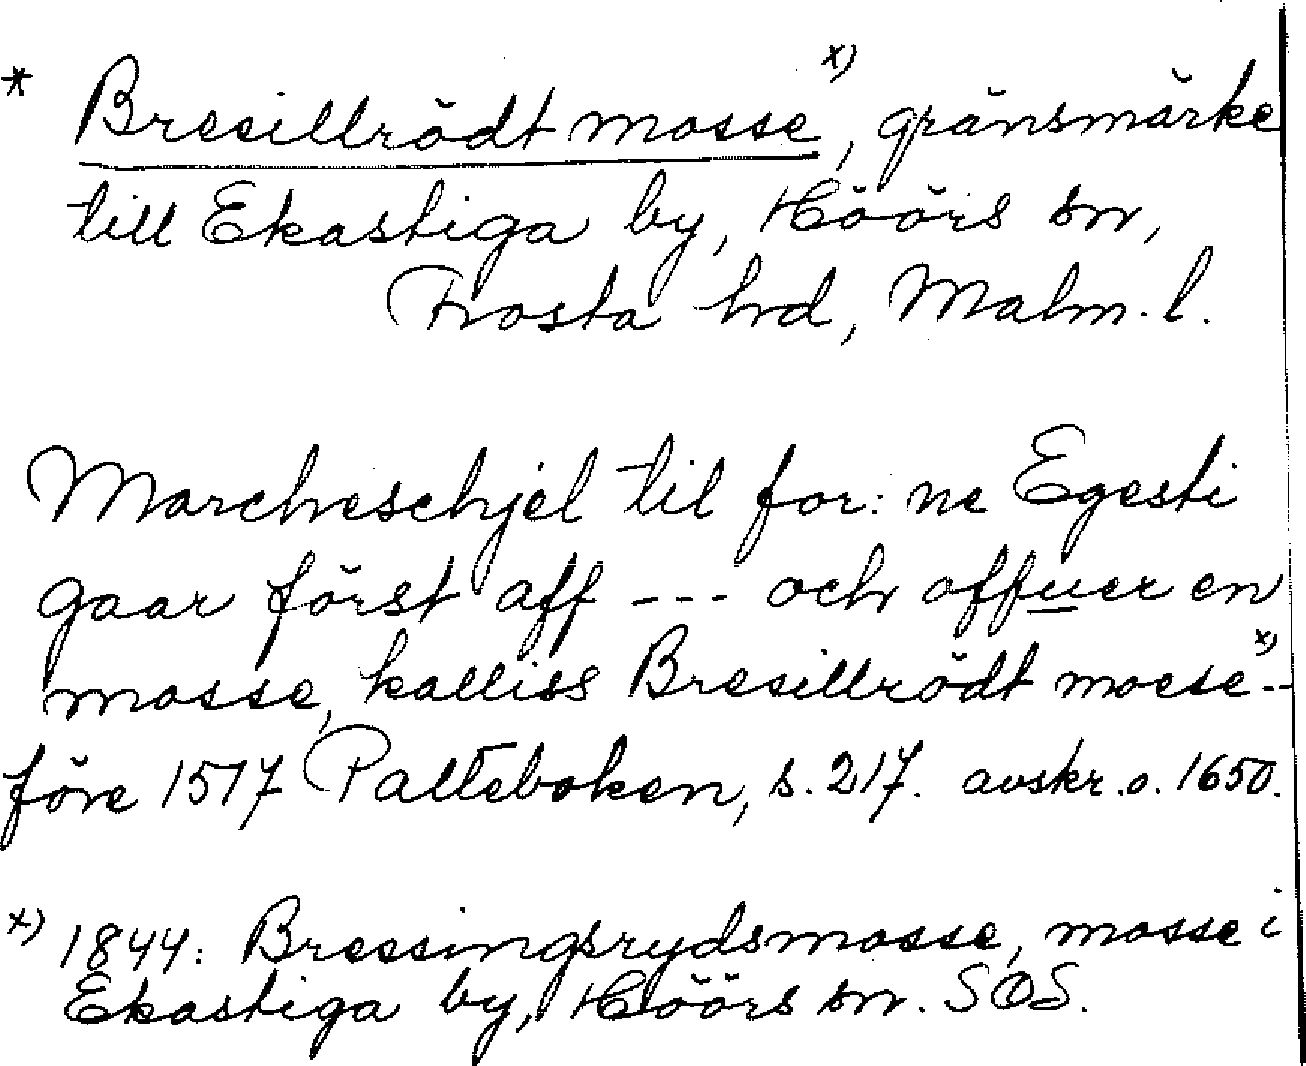 * Bresillrödt mosse x), gränsmärke
till Ekastiga by, Höörs sn,
Frosta hd, Malm. l.
Marcheschjel til for: ne Egesti
gaar först aff --- och offuer en
mosse, kalliss Bresillrödt mosse x) --
före 1517 Palteboken, s. 217. avskr. o. 1650.
x) 1844: Bressingsrydsmosse, mosse i
Ekastiga by, Höörs sn. SOS.